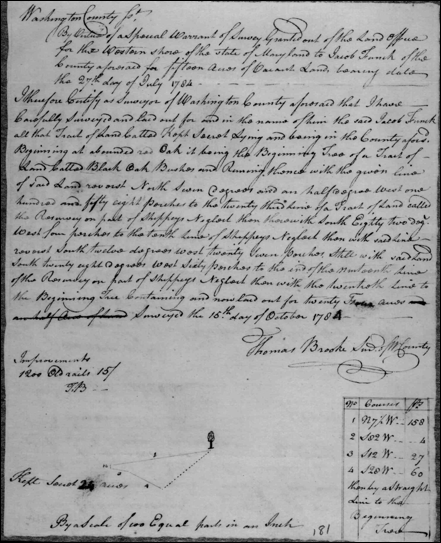 Washington County Sct.
By Virtue of a Special Warrant of Survey Granted out of the Land Office
for the Western Shore of the state of Maryland to Jacob Funck of the
County aforesaid for fifteen acres of Vacant Land, bearing date
the 27th day of July 1784
I therefore Certify as Surveyor of Washington County aforesaid that I have
Carefully Surveyed and Laid out for and in the name of him the said Jacob Funck
all that Tract of Land Called Kept Secret Lying and being in the County afores.
Beginning at a bounded red Oak it being the Beginning Tree of a Tract of
Land Called Black Oak Bushes and Running thence with the given line
of said Land reverst North Seven degrees and an half degree West one
hundred and fifty eight perches to the twenty third line of a Tract of Land called
the Resurvey on part of Shippeys Neglect then therewith South Eighty two deg.
West four perches to the tenth Line of Shippeys Neglect then with said line
reverst South twelve degrees west twenty Seven perches Still with said land
South twenty eight degrees West Sixty perches to the end of the nineteenth line
of the Resurvey on part of Shippeys Neglect then with the twentieth line to
the Beginning Tree Containing and now laid out for twenty acres and
an half Acre of Land Surveyed the 15th day of October 1784
Thomas Brooke Sur. W County
Improvements
1200 Old rails 15/
T.B
No Courses Ps
1 N7½W 158
2 S82W 4
3 S12W 27
4 S28W 60
then by a Straight
Line to the
Beginning
Tree
Kept Secret acres
By a Scale of 100 Equal parts in an Inch
181